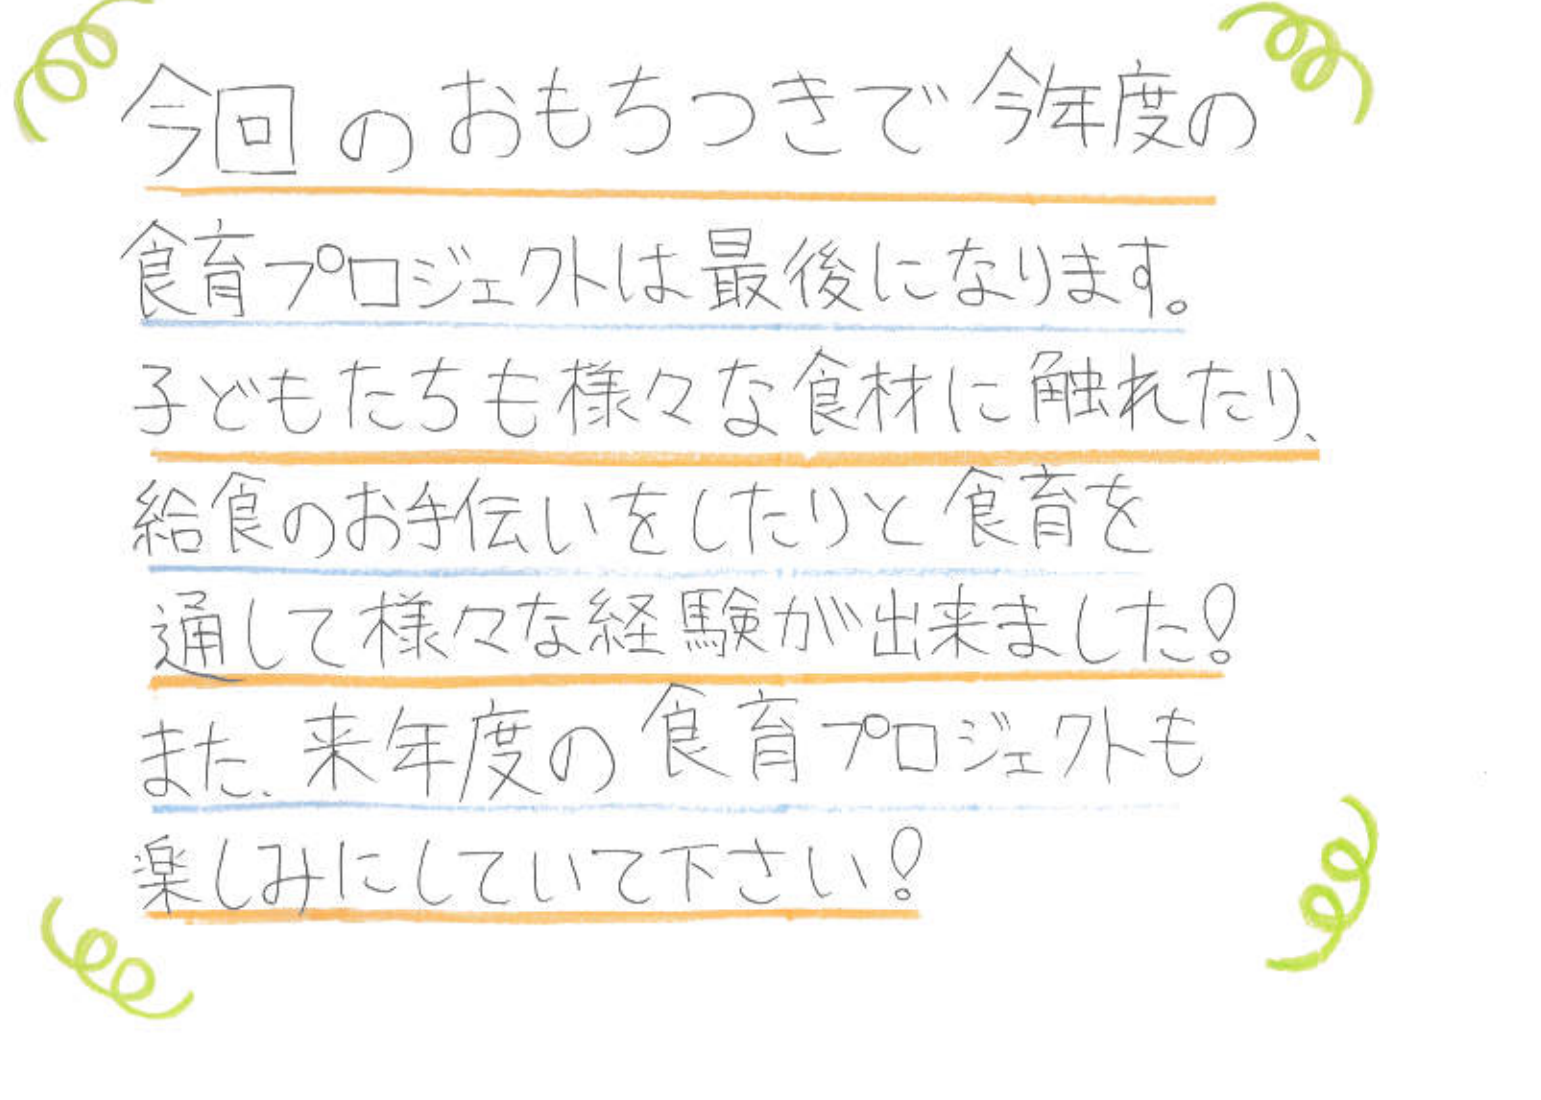 今回のおもちつきで今年度の
食育プロジェクトは最後になります。
子どもたちも様々な食材に触れたり、
給食のお手伝いをしたりと食育を
通して様々な経験が出来ました!
また、来年度の食育プロジェクトも
楽しみにしていて下さい!